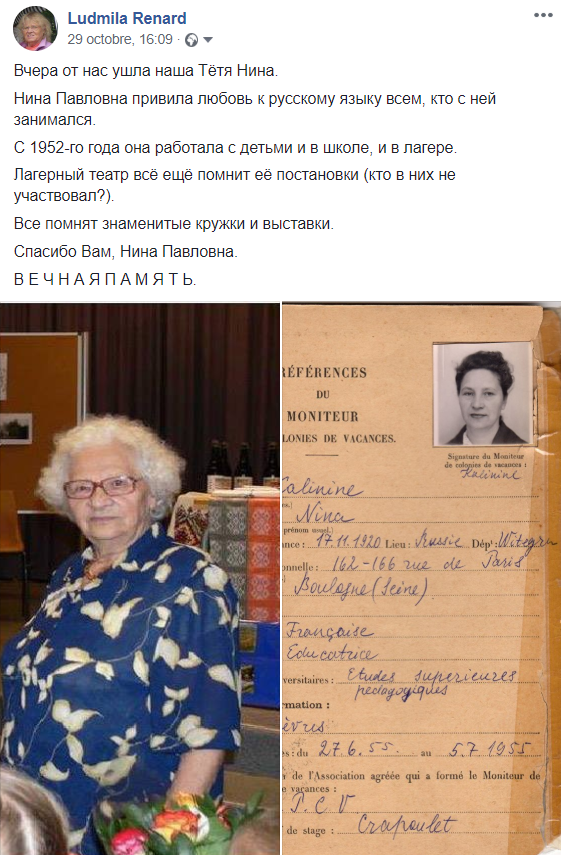 Ludmila Renard
29 octobre, 16:09 ·
Вчера от нас ушла наша Тётя Нина.
Нина Павловна привила любовь к русскому языку всем, кто с ней
занимался.
С 1952-го года она работала с детьми и в школе, и в лагере.
Лагерный театр всё ещё помнит её постановки (кто в них не
участвовал?).
Все помнят знаменитые кружки и выставки.
Спасибо Вам, Нина Павловна.
В Е Ч Н А Я П А М Я Т Ь.
RÉFÉRENCES
DU
MONITEUR
OLONIES DE VACANCES.
Signature du Moniteur
de colonies de vacances :
Kalinine
Kalinine
Nina
prénom usuel.)
nce : 17.11.1920 Lieu : Russie Dépt :
nnelle : 162-166 rue de Paris
Boulogne (Seine)
Française
Educatrice
versitaires : Etudes superieures
pedagogiques
rmation :
èvres
s : du 27.6.55. au 5.7.1955
n de l'Association agréée qui a formé le Moniteur de
e vacances :
P. C. V
de stage : Crapoulet